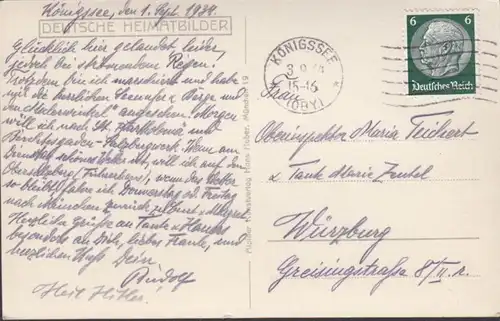 Königssee, den 1. Sept. 1934.
DEUTSCHE HEIMATBILDER
Glücklich hier gelandet, leider,
jedoch bei strömendem Regen!
Trotzdem bin ich marschiert und habe
mir die herrlichen Seeufer & Berge und
den "Malerwinkel" angesehen. Morgen
will ich nach St. Bartholomä und
Berchtesgaden - Salzbergwerk. Wenn am
Dienstag schönes Wetter ist, will ich auf den
Obersalzberg (Führerhaus), wenn das Wetter
so bleibt, fahre ich Donnerstag od. Freitag
nach München zurück
Herzliche Grüße an Tante &
besonders an Dich, liebe Tante, und
herzlichen Kuß Dein
Rudolf
Heil Hitler!
München 19
KÖNIGSSEE
15-16
(OBY)
6 6
Deutsches Reich
Frau
Oberinspektor Maria Teichert
& Tante Marie
Würzburg
Greisingstraße 87/II. r.